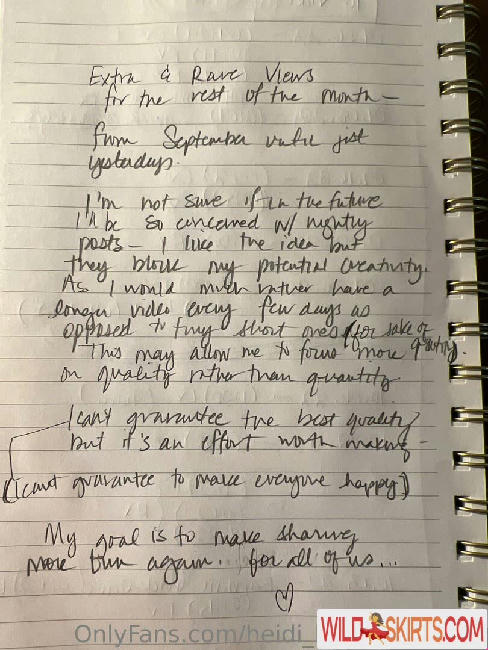 Extra & Rare Views
for the rest of the month –
from September until just
yesterday.
I'm not sure if in the future
I'll be so concerned w/ nightly
posts – I like the idea but
they block my potential creativity.
As I would much rather have a
longer video every few days as
opposed to tiny short ones (for sake of
This may allow me to focus more
on quality rather than quantity
I can't guarantee the best quality
but it's an effort worth making –
(I can't guarantee to make everyone happy)
My goal is to make sharing
more fun again... for all of us...
OnlyFans.com/heidi_
WILDSKIRTS.COM